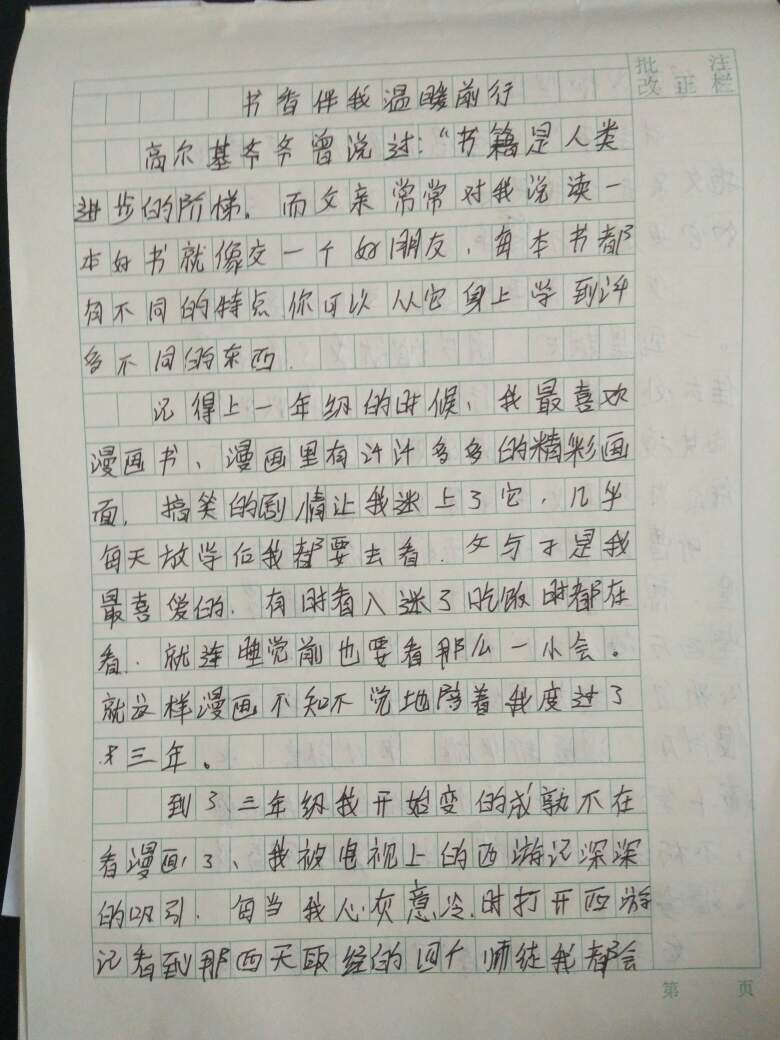 批 注
改 正 栏
书香伴我温暖前行
高尔基爷爷曾说过:“书籍是人类
进步的阶梯。而父亲常常对我说读一
本好书就像交一个好朋友,每本书都
有不同的特点你可以从它身上学到许
多不同的东西.
记得上一年级的时候、我最喜欢
漫画书、漫画里有许许多多的精彩画
面,搞笑的剧情让我迷上了它,几乎
每天放学后我都要去看.于是我
最喜爱的.有时看入迷了吃饭时都在
看.就连睡觉前也要看那么一小会。
就这样漫画不知不觉地陪着我度过了
三年。
到了三年级我开始变的成熟不在
看漫画了、我被电视上的西游记深深
的吸引.每当我心灰意冷.时打开西游
记看到那西天取经的四个师徒我都会
第 页